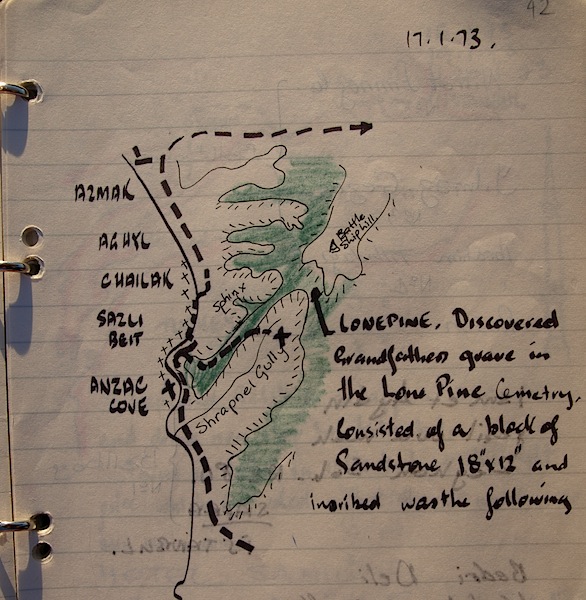 42
17.1.73.
AZMAK
AGHYL
CHAILAK
SAZLI
BEIT
ANZAC
COVE
Sphinx
Shrapnel Gully
Battle
Ship hill
LONEPINE. Discovered
Grandfathers grave in
the Lone Pine Cemetry.
Consisted of a block of
Sandstone 18"x12" and
inscribed was the following